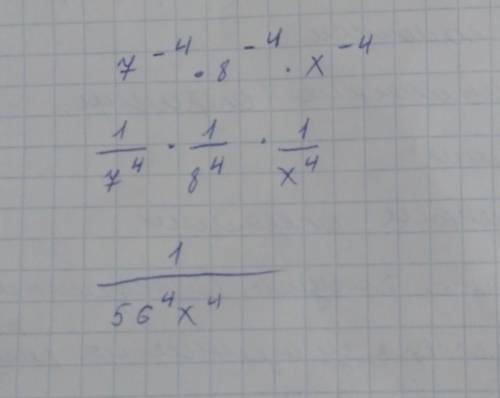 7⁻⁴ · 8⁻⁴ · x⁻⁴
1/7⁴ · 1/8⁴ · 1/x⁴
1/56⁴x⁴